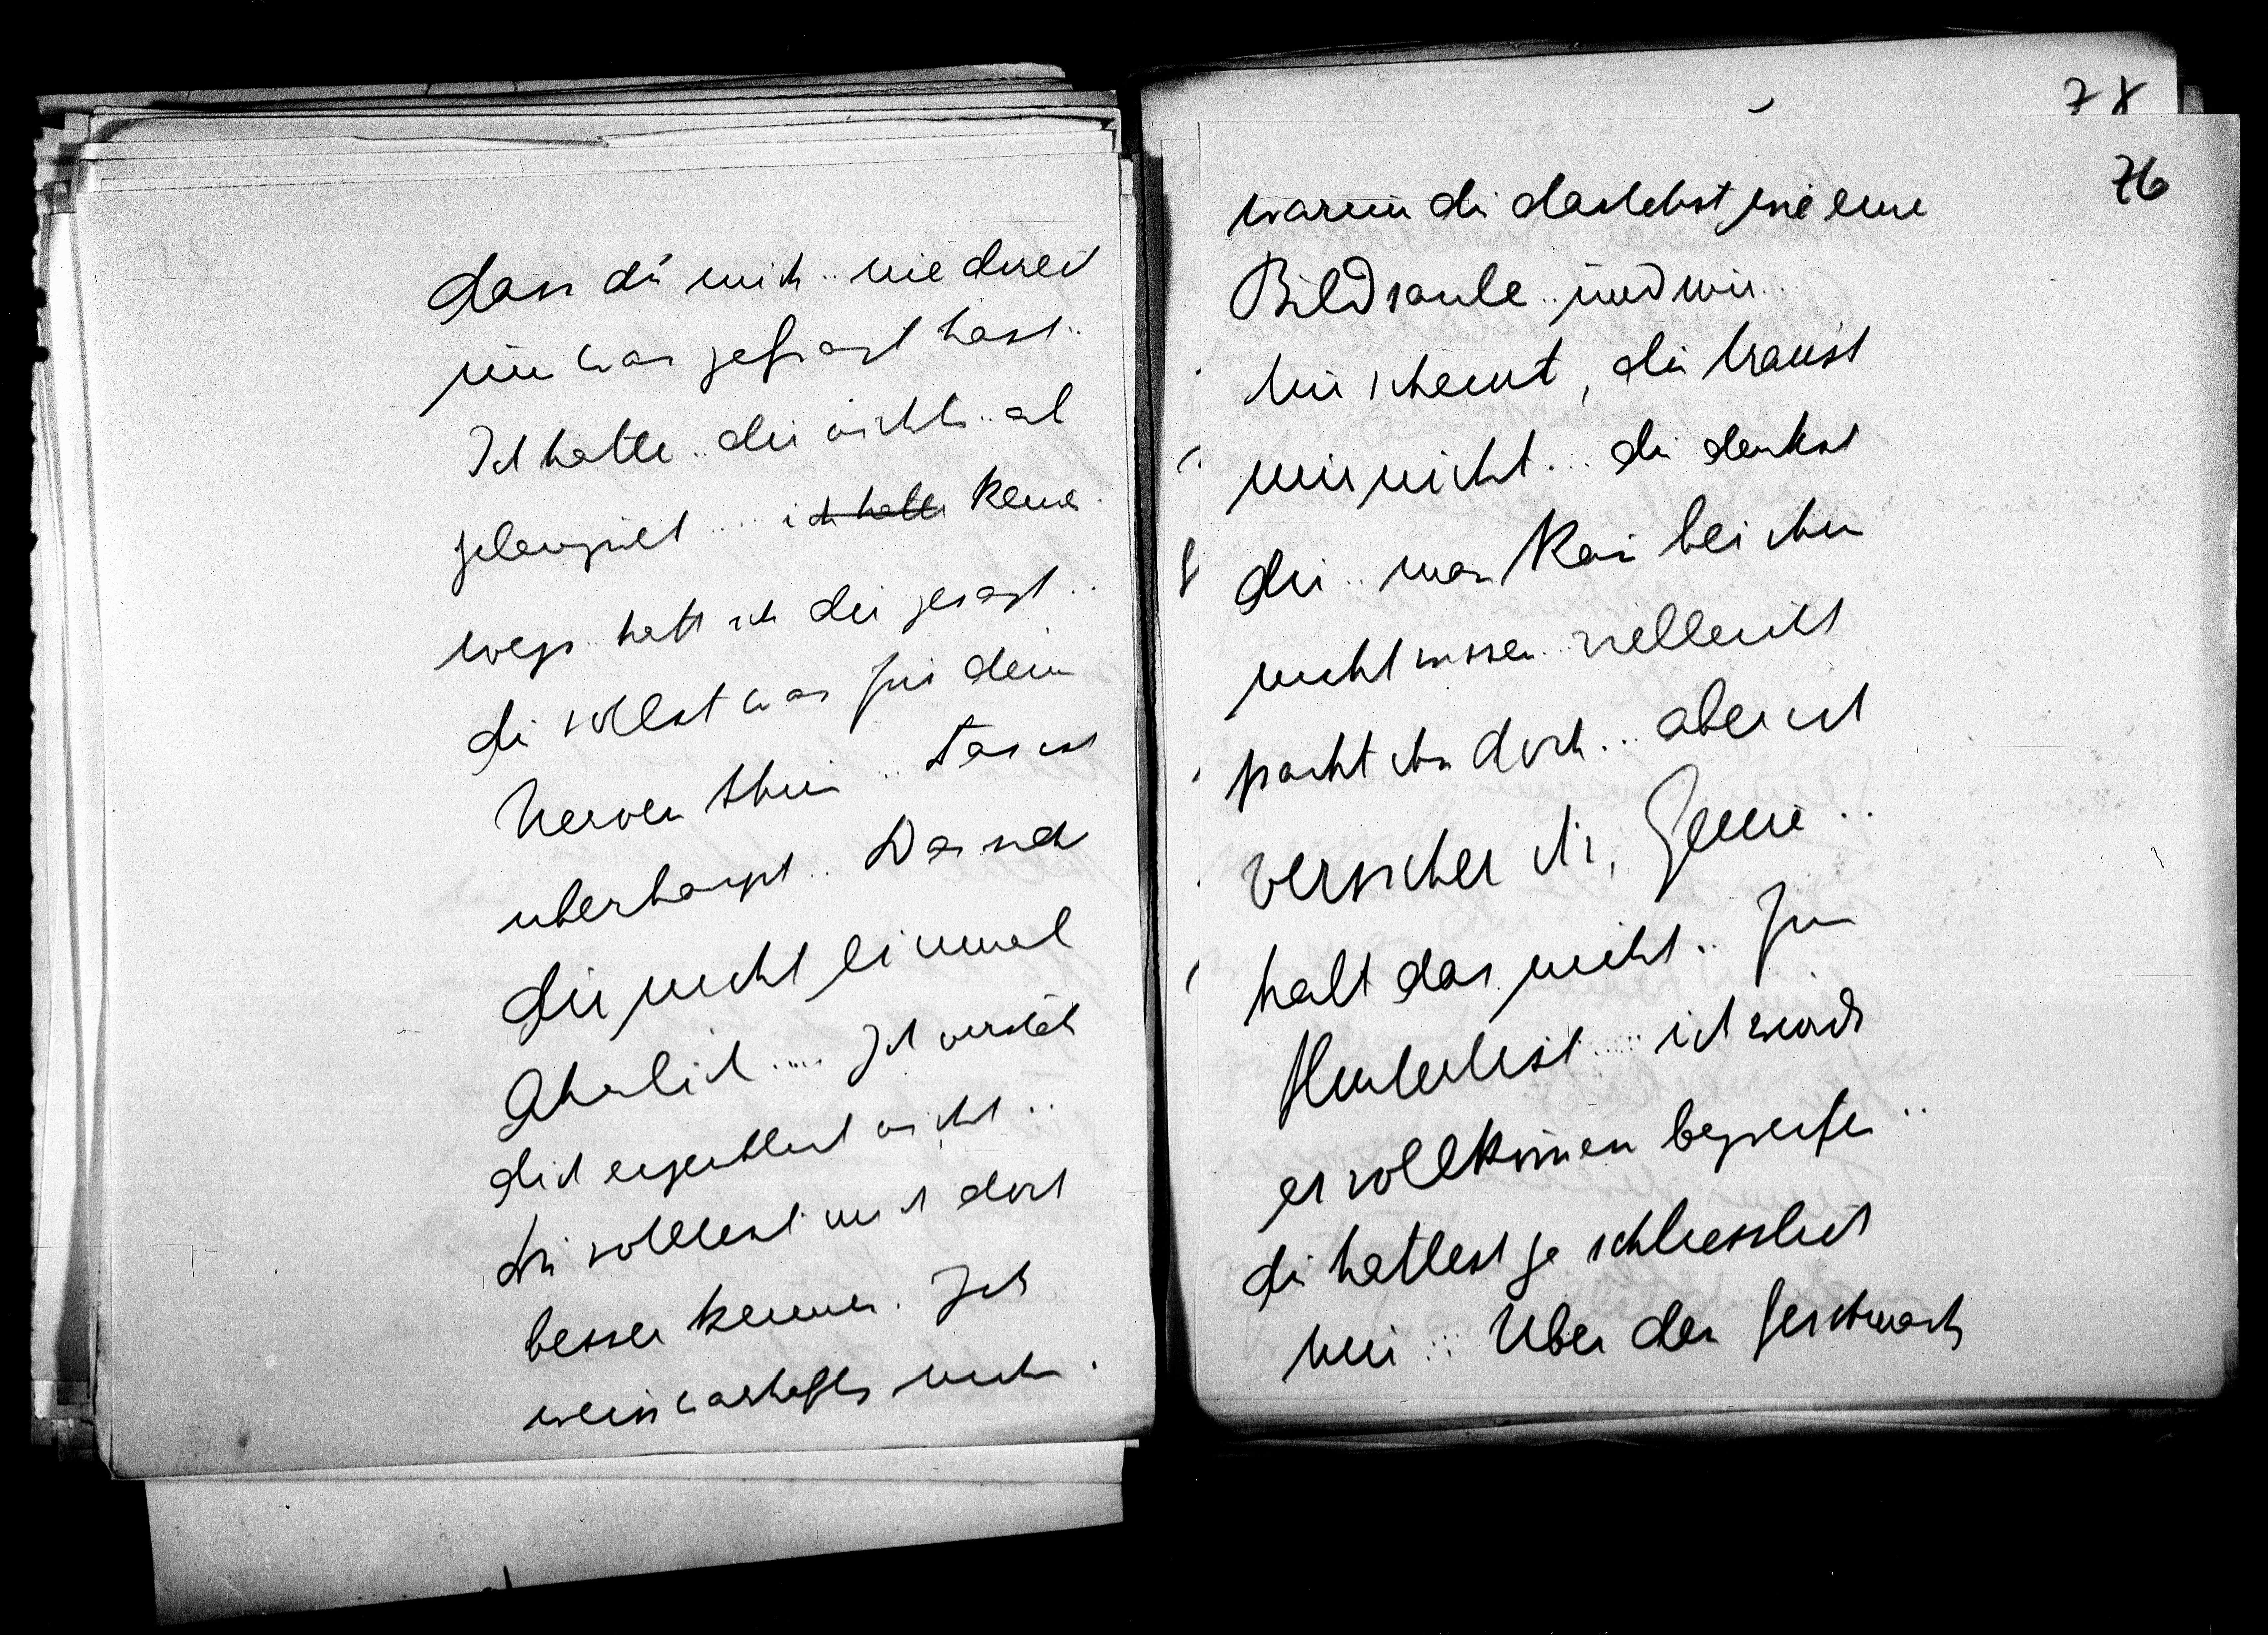 dass du mich .. nie direct
um was gefragt hast ..
Ich hätte .. dir nichts .. ab
geleugnet .... ich hätte keines
wegs .. hätt ich dir gesagt ..
du sollst was für dein
Nerven thun .. Das ist
überhaupt .. Das sieht
dir nicht einmal
ähnlich ..... Ich versteh
dich eigentlich nicht ..
Du solltest mich doch
besser kennen. Ich
weiss wahrhaftig nicht
78
76
warum du dastehst wie eine
Bildsäule .. und mir ..
mir scheint, du traust
mir nicht ... du denkst
dir .. man kan bei ihm
nicht wissen .. vielleicht
packt ihn doch ... aber ich
versicher dir, ..
halt das nicht .. für
Hinterlist ..... ich würde
es vollkommen begreifen ..
du hattest ja schliesslich
nur ... Über den Geschmack